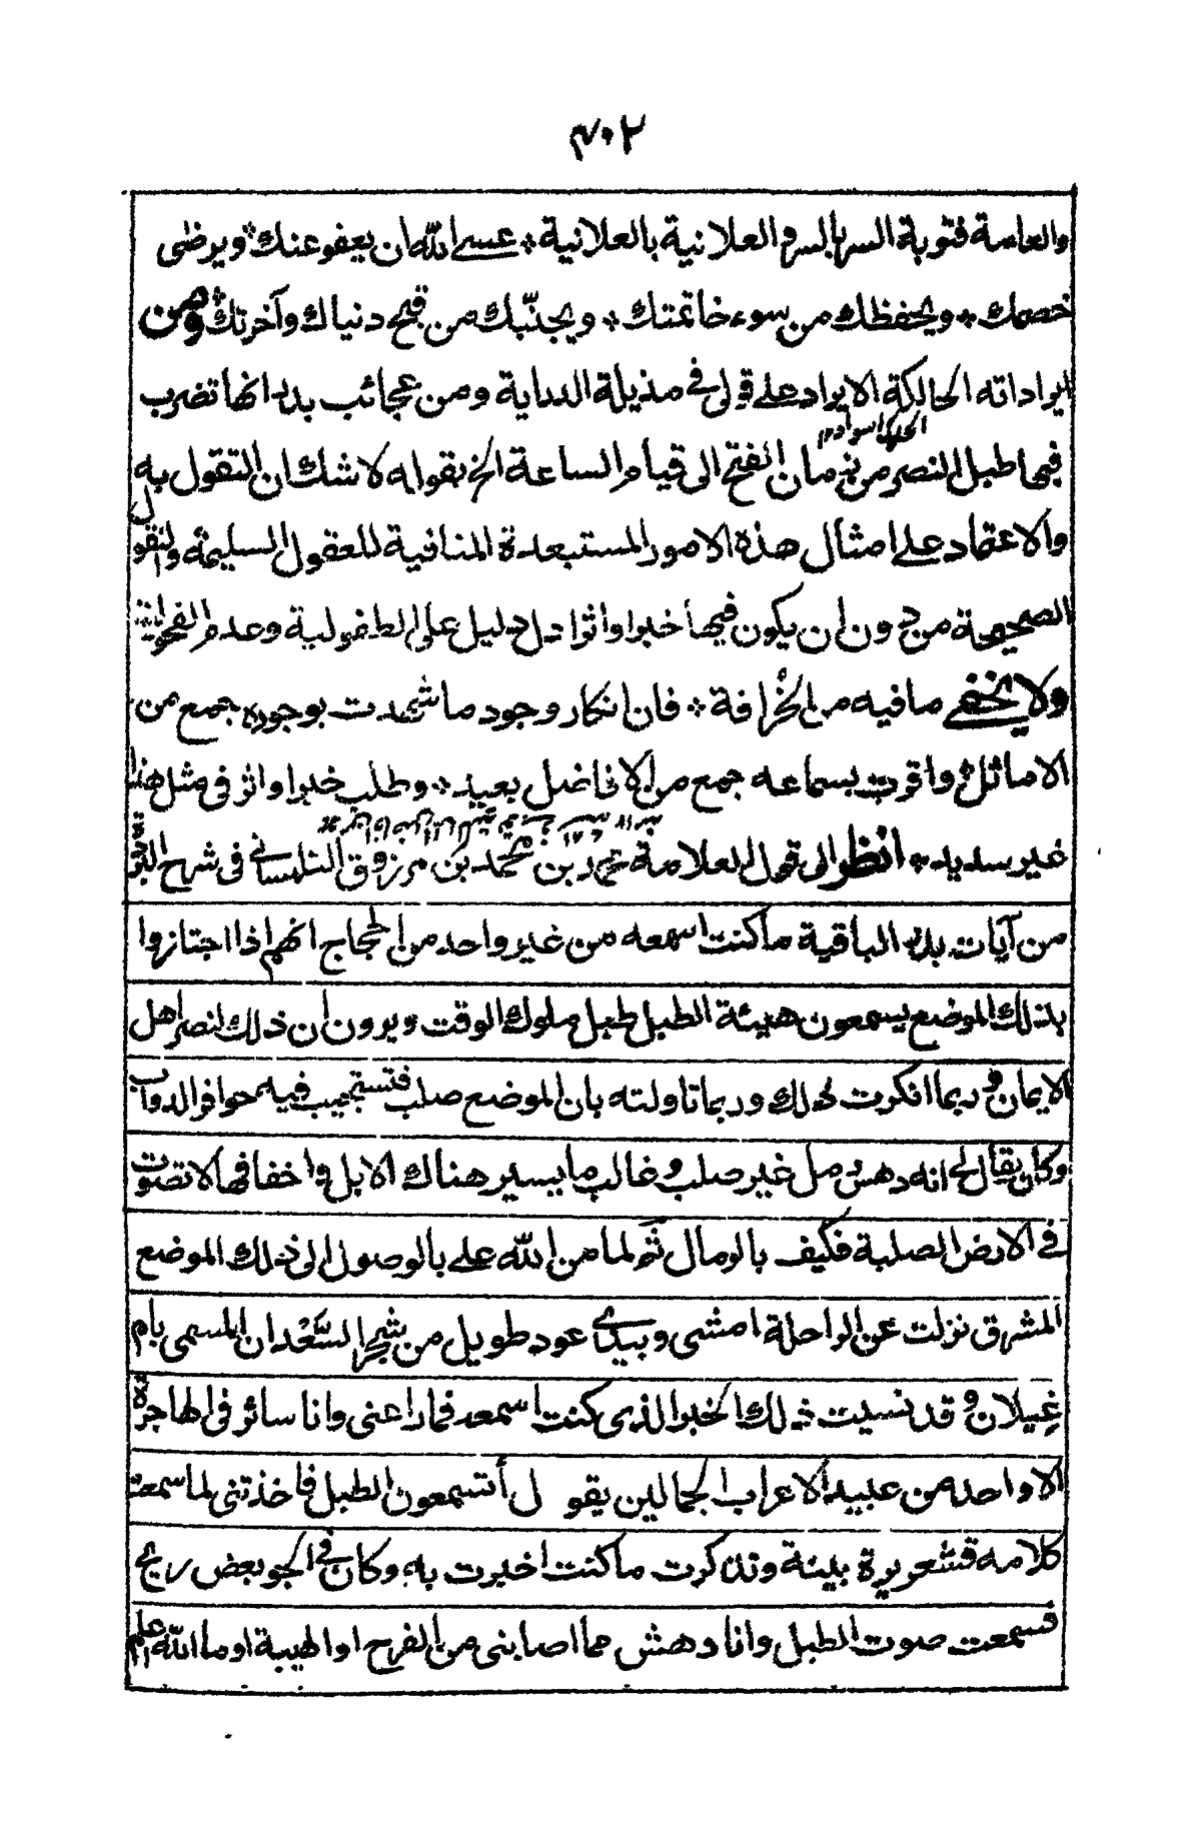 ٣٠٢
والعامة فتوبة السر بالسر والعلانية بالعلانية * عسى الله ان يعفو عنك * ويرضى
خصمك * ويحفظك من سوء خاتمتك * ويجنّبك من قبح دنياك وآخرتك * ومن
ايراداته الحالكة الايراد على قولى فى مذيلة الدراية ومن عجائب بدر انها تضرب
فيها طبل النصر من زمان الفتح الى قيام الساعة الخ بقوله لا شك ان التقول به
والاعتماد على امثال هذه الامور المستبعدة المنافية للعقول السليمة والنقول
الصحيحة من دون ان يكون فيها خبر او اثر ادل دليل على الطفولية وعدم الفحولية
ولا يخفى ما فيه من الخُرافة * فان انكار وجود ما شهدت بوجوده جمع من
الاماثل * واقرت بسماعه جمع من الافاضل بعيد * وطلب خبر او اثر فى مثل هذا
غير سديد * انظر الى قول العلامة محمد بن محمد بن مرزوق التلمسانى فى شرح البردة
من آيات بدر الباقية ما كنت اسمعه من غير واحد من الحجاج انهم اذا اجتازوا
بذلك الموضع يسمعون هيئة الطبل طبل ملوك الوقت ويرون ان ذلك لنصر اهل
الايمان وربما انكرت ذلك وربما تاولته بان الموضع صلب فتستجيب فيه حوافر الدواب
وكان يقال لى انه دهس رمل غير صلب وغالب ما يسير هناك الابل واخفافها لا تصوت
فى الارض الصلبة فكيف بالرمال ثم لما من الله على بالوصول الى ذلك الموضع
المشرق نزلت عن الراحلة امشى وبيدى عود طويل من شجر السَّعْدان المسمى بام
غيلان وقد نسيت ذلك الخبر الذى كنت اسمعه فما راعنى وانا سائر فى الهاجرة
الا واحد من عبيد الاعراب الجمالين يقول أتسمعون الطبل فاخذتنى لما سمعت
كلامه قشعريرة بينة وتذكرت ما كنت اخبرت به وكان فى الجو بعض ريح
فسمعت صوت الطبل وانا دهش مما اصابنى من الفرح او الهيبة او ما الله اعلم